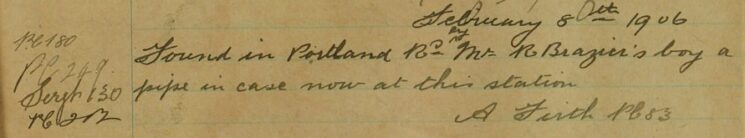 February 8th 1906
PC 180
PP. 249.
Sergt 130
PC 202
Found in Portland Rd by Mr R Brazier's boy a
pipe in case now at this station
A Firth PC 83